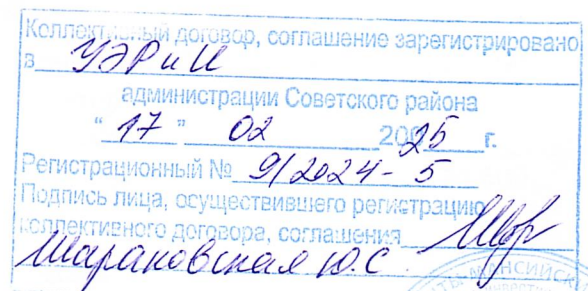 Коллективный договор, соглашение зарегистрировано
в УЭРиИ
администрации Советского района
" 17 " 02 20025 г.
Регистрационный № 9/2024-5
Подпись лица, осуществившего регистрацию
коллективного договора, соглашения
Шарановская Ю.С.